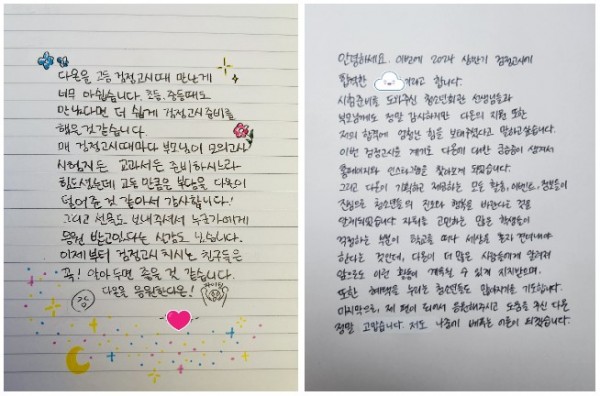 다온을 고등 검정고시때 만난게
너무 아쉽습니다. 초등, 중등때도
만났다면 더 쉽게 검정고시 준비를
했을것 같습니다.
매 검정고시때마다 부모님이 모의고사
시험지든 교과서든 준비하시느라
힘드셨는데 고등 만큼은 부담을 다온이
덜어준 것 같아서 감사합니다!
그리고 선물도 보내주셔서 누군가에게
응원 받고있다는 실감도 났습니다.
이제부터 검정고시 치시는 친구들은
꼭! 알아두면 좋을 것 같습니다.
다온을 응원한다온!
안녕하세요. 이번에 2024 상반기 검정고시에
합격한 라고 합니다.
시험준비를 도와주신 청소년회관 선생님들과
부모님께도 정말 감사하지만 다온의 지원 또한
저의 합격에 엄청난 힘을 보태주었다고 말하고싶습니다.
이번 검정고시를 계기로 다온에 대한 궁금증이 생겨서
홈페이지와 인스타그램을 찾아보게 되었습니다.
그리고 다온이 기획하고 제공하는 모든 활동, 이벤트, 정보들이
진심으로 청소년들의 진로와 행복을 바란다는 것을
알게되었습니다. 자퇴를 고민하는 많은 학생들이
걱정하는 부분이 학교를 떠나 세상을 혼자 견뎌내야
한다는 것인데, 다온이 더 많은 사람들에게 알려져
앞으로도 이런 활동이 계속될 수 있게 지지받으며,
또한 혜택을 누리는 청소년들도 많아지기를 기도합니다.
마지막으로, 제 편이 되어서 응원해주시고 도움을 주신 다온
정말 고맙습니다. 저도 나중에 베푸는 어른이 되겠습니다.